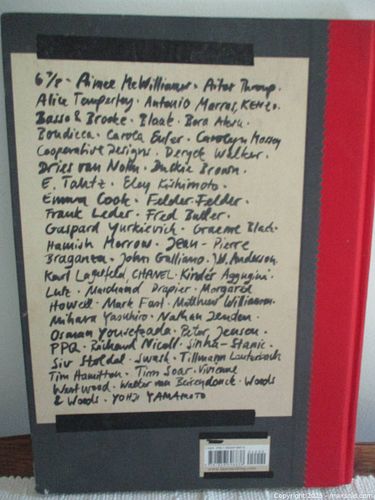 6 7/8 · Aimee McWilliams · Aitor Throup ·
Alice Temperley · Antonio Marras, KENZO ·
Basso & Brooke · Blaak · Bora Aksu ·
Boudicca · Carola Euler · Carolyn Massey
Cooperative Designs · Deryck Walker ·
Dries van Noten · Duckie Brown ·
E. Tautz · Eley Kishimoto ·
Emma Cook · Felder·Felder ·
Frank Leder · Fred Butler ·
Gaspard Yurkievich · Graeme Black ·
Hamish Morrow · Jean-Pierre
Braganza · John Galliano · J.W. Anderson ·
Karl Lagerfeld, CHANEL · Kinder Aggugini ·
Lutz · Marchand Drapier · Margaret
Howell · Mark Fast · Matthew Williamson ·
Mihara Yasuhiro · Nathan Jenden ·
Osman Yousefzada · Peter Jensen ·
PPQ · Richard Nicoll · Sinha-Stanic ·
Siv Støldal · Swash · Tillmann Lauterbach
Tim Hamilton · Tim Soar · Vivienne
Westwood · Walter van Beirendonck · Woods
& Woods · YOHJI YAMAMOTO